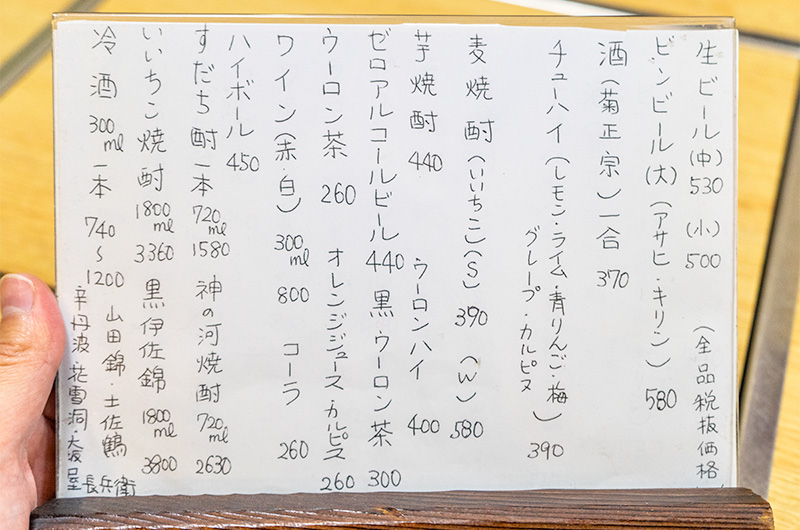 生ビール(中)530 (小)500 (全品税抜価格)
ビンビール(大)(アサヒ・キリン)580
酒(菊正宗)一合 370
チューハイ(レモン・ライム・青りんご・梅
グレープ・カルピス)390
麦焼酎(いいちこ)(S)390 (W)580
芋焼酎 440 ウーロンハイ 400
ゼロアルコールビール 440 黒ウーロン茶 300
ウーロン茶 260 オレンジジュース・カルピス 260
ワイン(赤・白)300ml 800 コーラ 260
ハイボール 450
すだち酎一本 720ml 1580 神の河焼酎 720ml 2630
いいちこ焼酎 1800ml 3360 黒伊佐錦 1800ml 3800
冷酒 300ml 一本 740~1200 山田錦・土佐鶴
辛丹波・花雪洞・大阪屋長兵衛